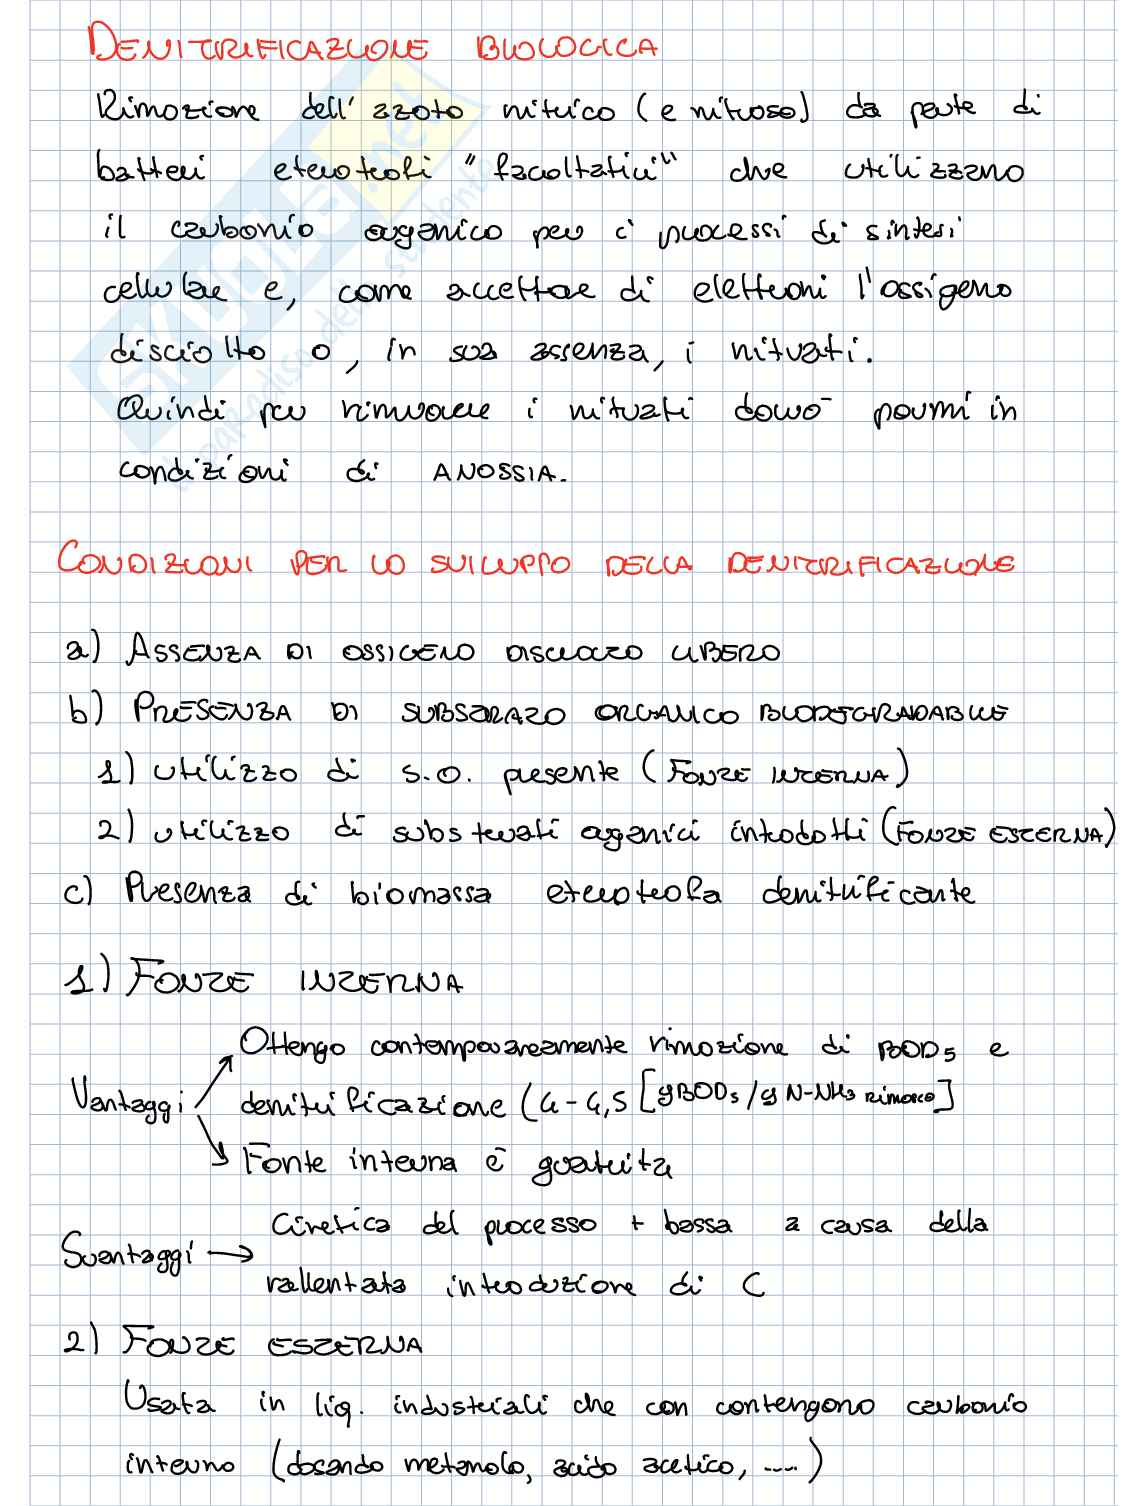 DENITRIFICAZIONE BIOLOGICA
Rimozione dell'azoto nitrico (e nitroso) da parte di
batteri eterotrofi "facoltativi" che utilizzano
il carbonio organico per i processi di sintesi
cellulare e, come accettore di elettroni l'ossigeno
disciolto o, in sua assenza, i nitrati.
Quindi per rimuovere i nitrati dovrò pormi in
condizioni di ANOSSIA.
CONDIZIONI PER LO SVILUPPO DELLA DENITRIFICAZIONE
a) ASSENZA DI OSSIGENO DISCIOLTO LIBERO
b) PRESENZA DI SUBSTRATO ORGANICO BIODEGRADABILE
1) utilizzo di s.o. presente (FONTE INTERNA)
2) utilizzo di substrati organici introdotti (FONTE ESTERNA)
c) Presenza di biomassa eterotrofa denitrificante
1) FONTE INTERNA
Ottengo contemporaneamente rimozione di BOD5 e
Vantaggi denitrificazione (4-4,5 [gBOD5/g N-NH3 rimosso]
Fonte interna è gratuita
Cinetica del processo + bassa a causa della
Svantaggi → rallentata introduzione di C
2) FONTE ESTERNA
Usata in liq. industriali che non contengono carbonio
interno (dosando metanolo, acido acetico, ....)
SKUOLA.net
il paradiso dello studente